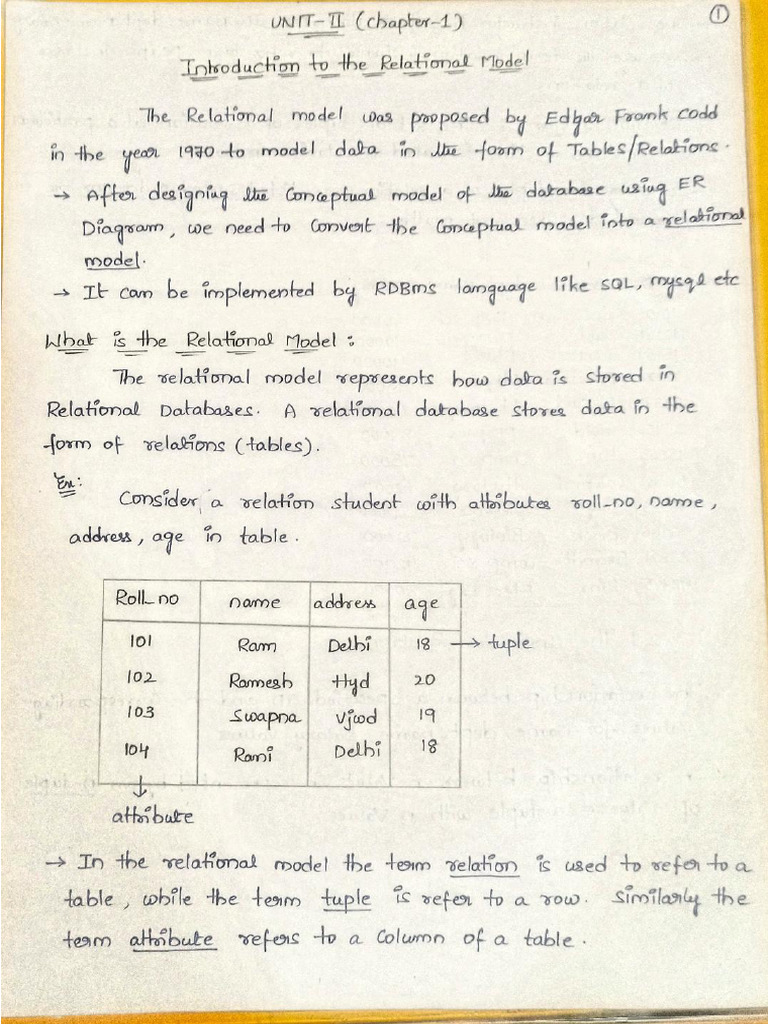 ①
UNIT-II (chapter-1)
Introduction to the Relational Model
The Relational model was proposed by Edgar Frank Codd
in the year 1970 to model data in the form of Tables/Relations.
→ After designing the Conceptual model of the database using ER
Diagram, we need to convert the conceptual model into a relational
model.
→ It can be implemented by RDBms language like SQL, mysql etc
What is the Relational Model :
The relational model represents how data is stored in
Relational Databases. A relational database stores data in the
form of relations (tables).
Ex:
Consider a relation student with attributes roll_no, name,
address, age in table.
Roll_no name address age
101 Ram Delhi 18 → tuple
102 Ramesh Hyd 20
103 Swapna Vjwd 19
104 Rani Delhi 18
↓
attribute
→ In the relational model the term relation is used to refer to a
table, while the term tuple is refer to a row. Similarly the
term attribute refers to a column of a table.